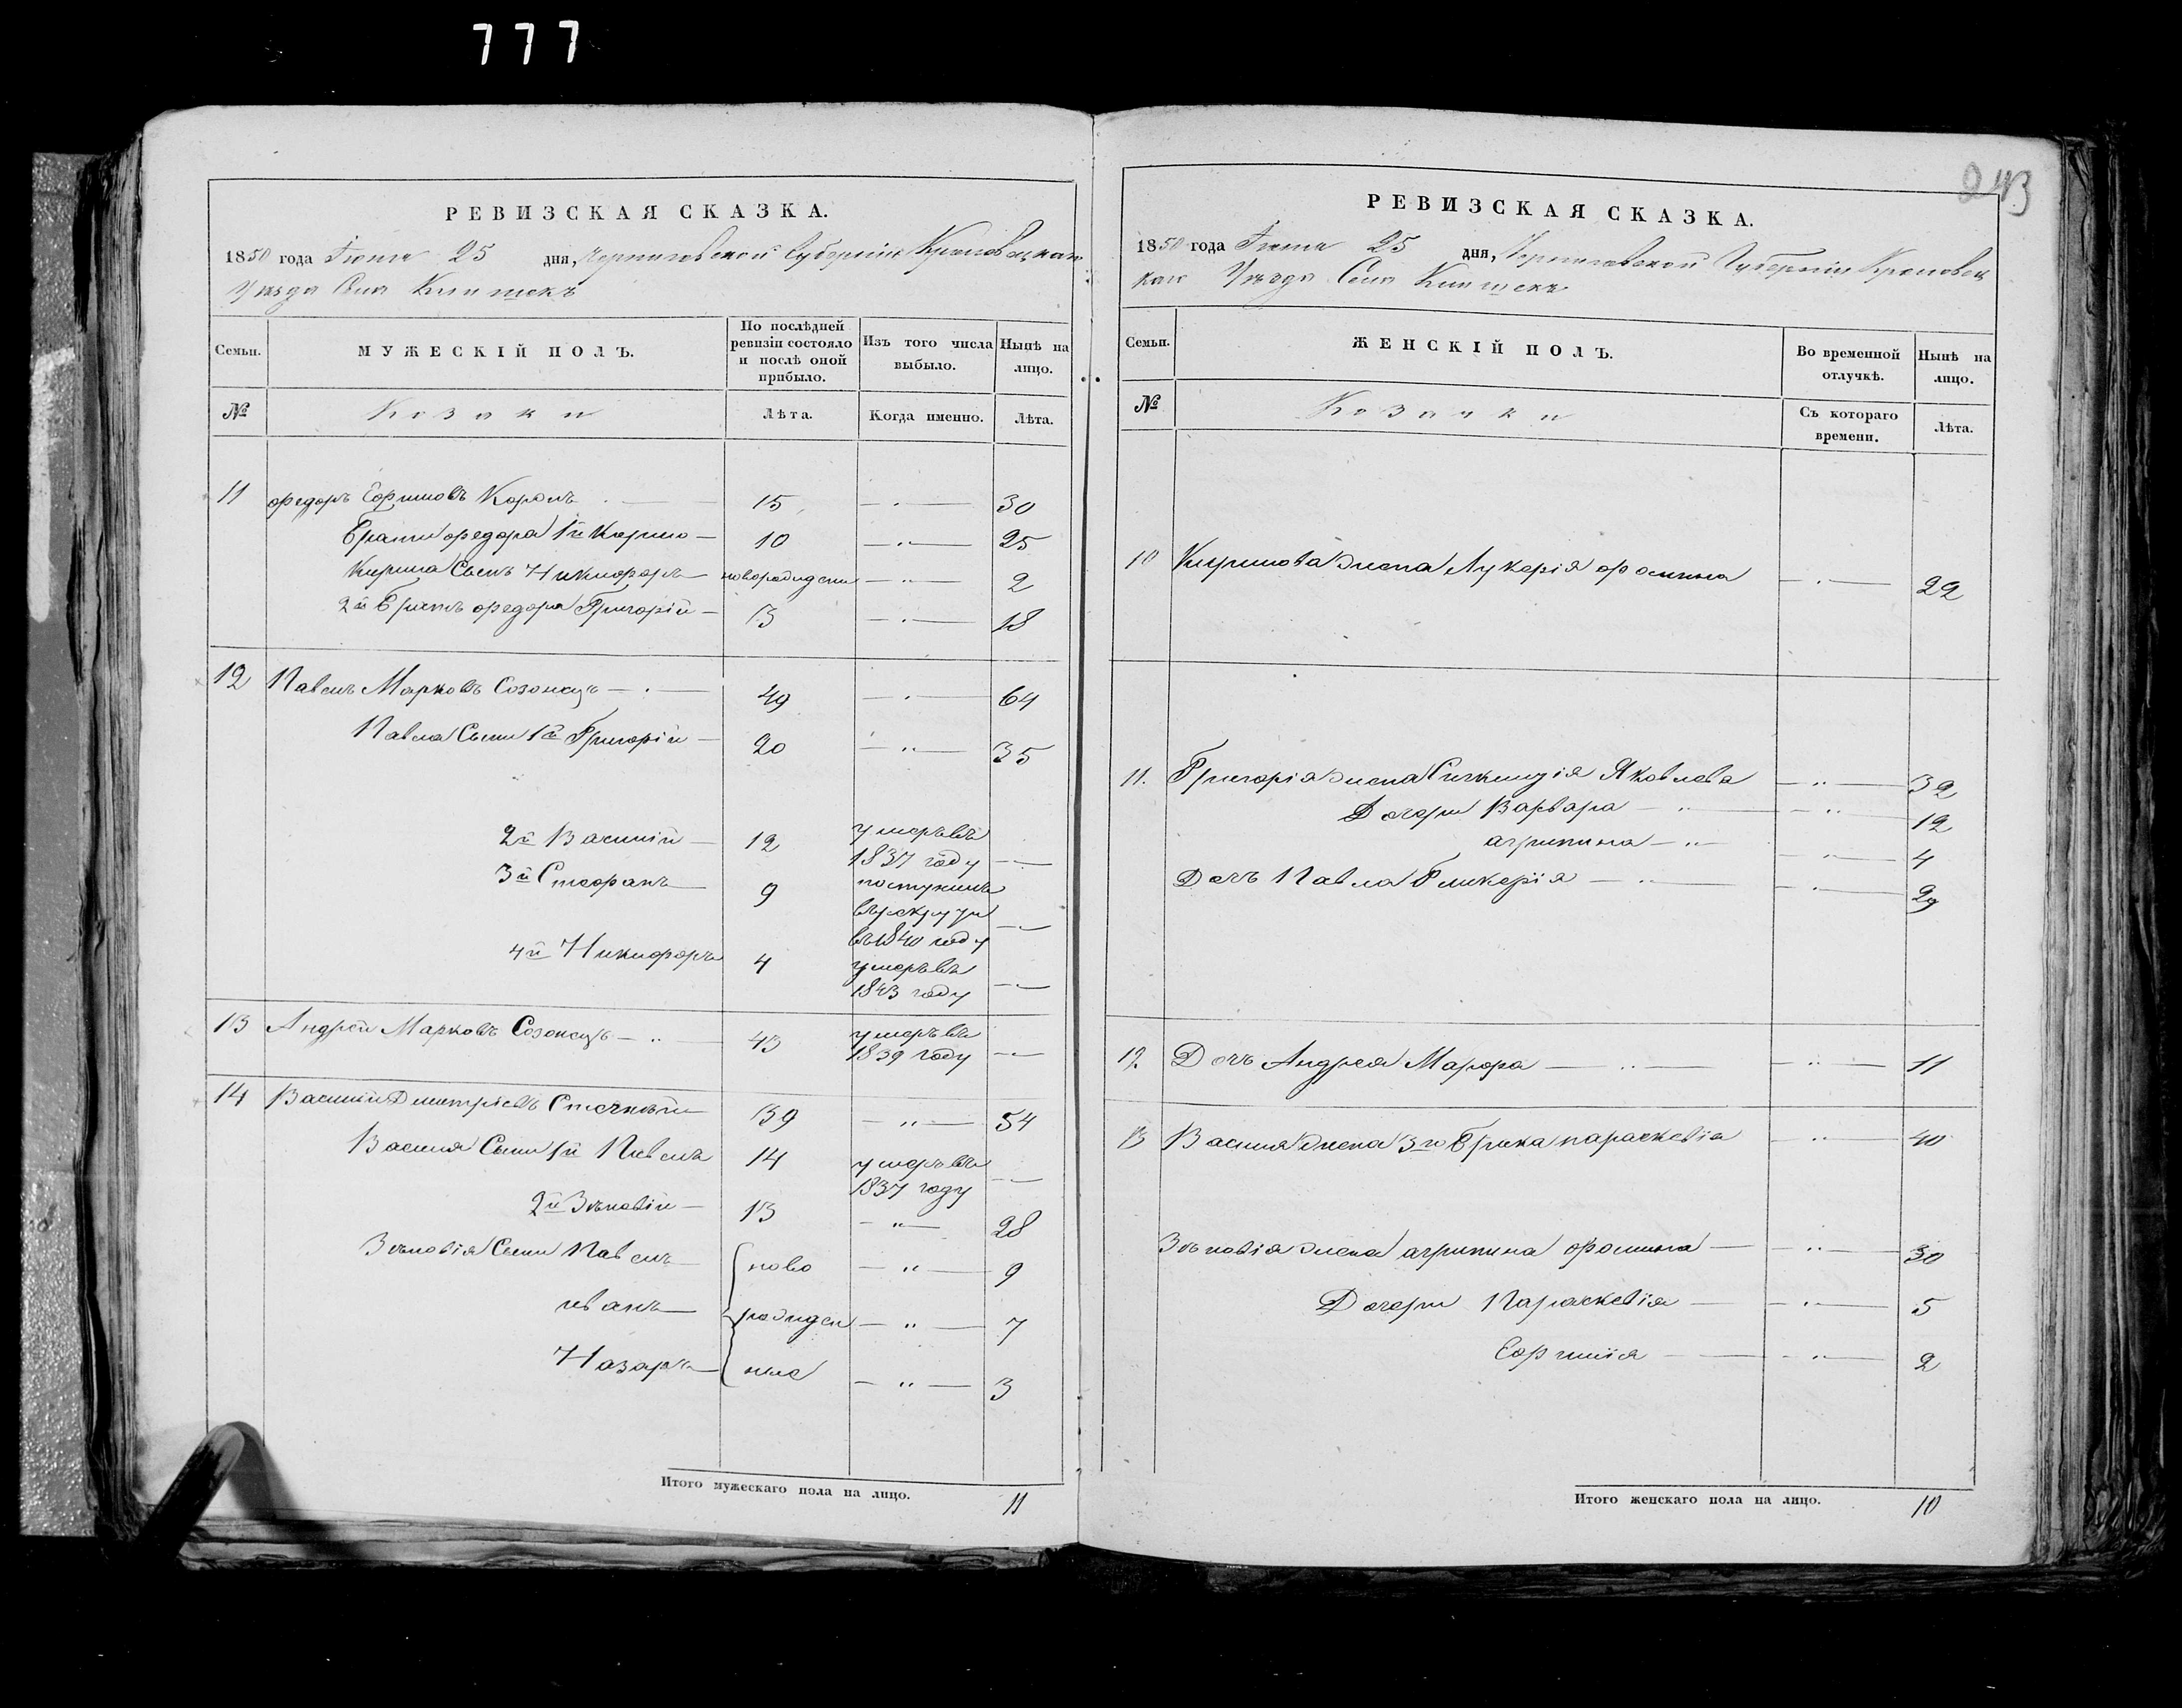 777
243
РЕВИЗСКАЯ СКАЗКА.
1850 года Іюня 25 дня, Черниговской Губерніи Кролевецкаго
Уѣзда Села Клишекъ
Семьи. МУЖЕСКІЙ ПОЛЪ. По послѣдней ревизіи состояло и послѣ оной прибыло. Изъ того числа выбыло. Нынѣ на лицо.
№ Козаки Лѣта. Когда именно. Лѣта.
11 Федоръ Ефимовъ 15 30
Братья Федора 1й 10 25
Сынъ Никифоръ новорожден 2
2й Братъ Федора Григорій 3 18
12 Павелъ Марковъ Созонецъ 49 64
Павла Сыны 1й Григорій 20 35
2й Василій 12 умеръ въ
1837 году
3й Стефанъ 9 поступилъ
въ рекруты
въ 1840 году
4й Никифоръ 4 умеръ въ
1843 году
13 Андрей Марковъ Созонецъ 43 умеръ въ
1839 году
14 Василій Дмитріевъ 39 54
Василя Сыны 1й Павелъ 14 умеръ въ
1837 году
2й Зѣновій 13 28
Зѣновія Сыны Павелъ ново 9
иванъ рожден 7
Назаръ ные 3
Итого мужескаго пола на лицо. 11
РЕВИЗСКАЯ СКАЗКА.
1850 года Іюня 25 дня, Черниговской Губерніи Кролевец
каго Уѣзда Села Клишекъ
Семьи. ЖЕНСКІЙ ПОЛЪ. Во временной отлучкѣ. Нынѣ на лицо.
№ Козачки Съ котораго времени. Лѣта.
10 жена Лукерія Фомина 22
11. Григорія жена Яковлева 32
Дочери Варвара 12
агрипина 4
Дочь Павла Гликерія 29
12. Дочь Андрея Марфа 11
13 Василя жена 3го Брака параскевія 40
Зѣновія жена агрипина Фомина 30
Дочери Параскевія 5
Евфимія 2
Итого женскаго пола на лицо. 10